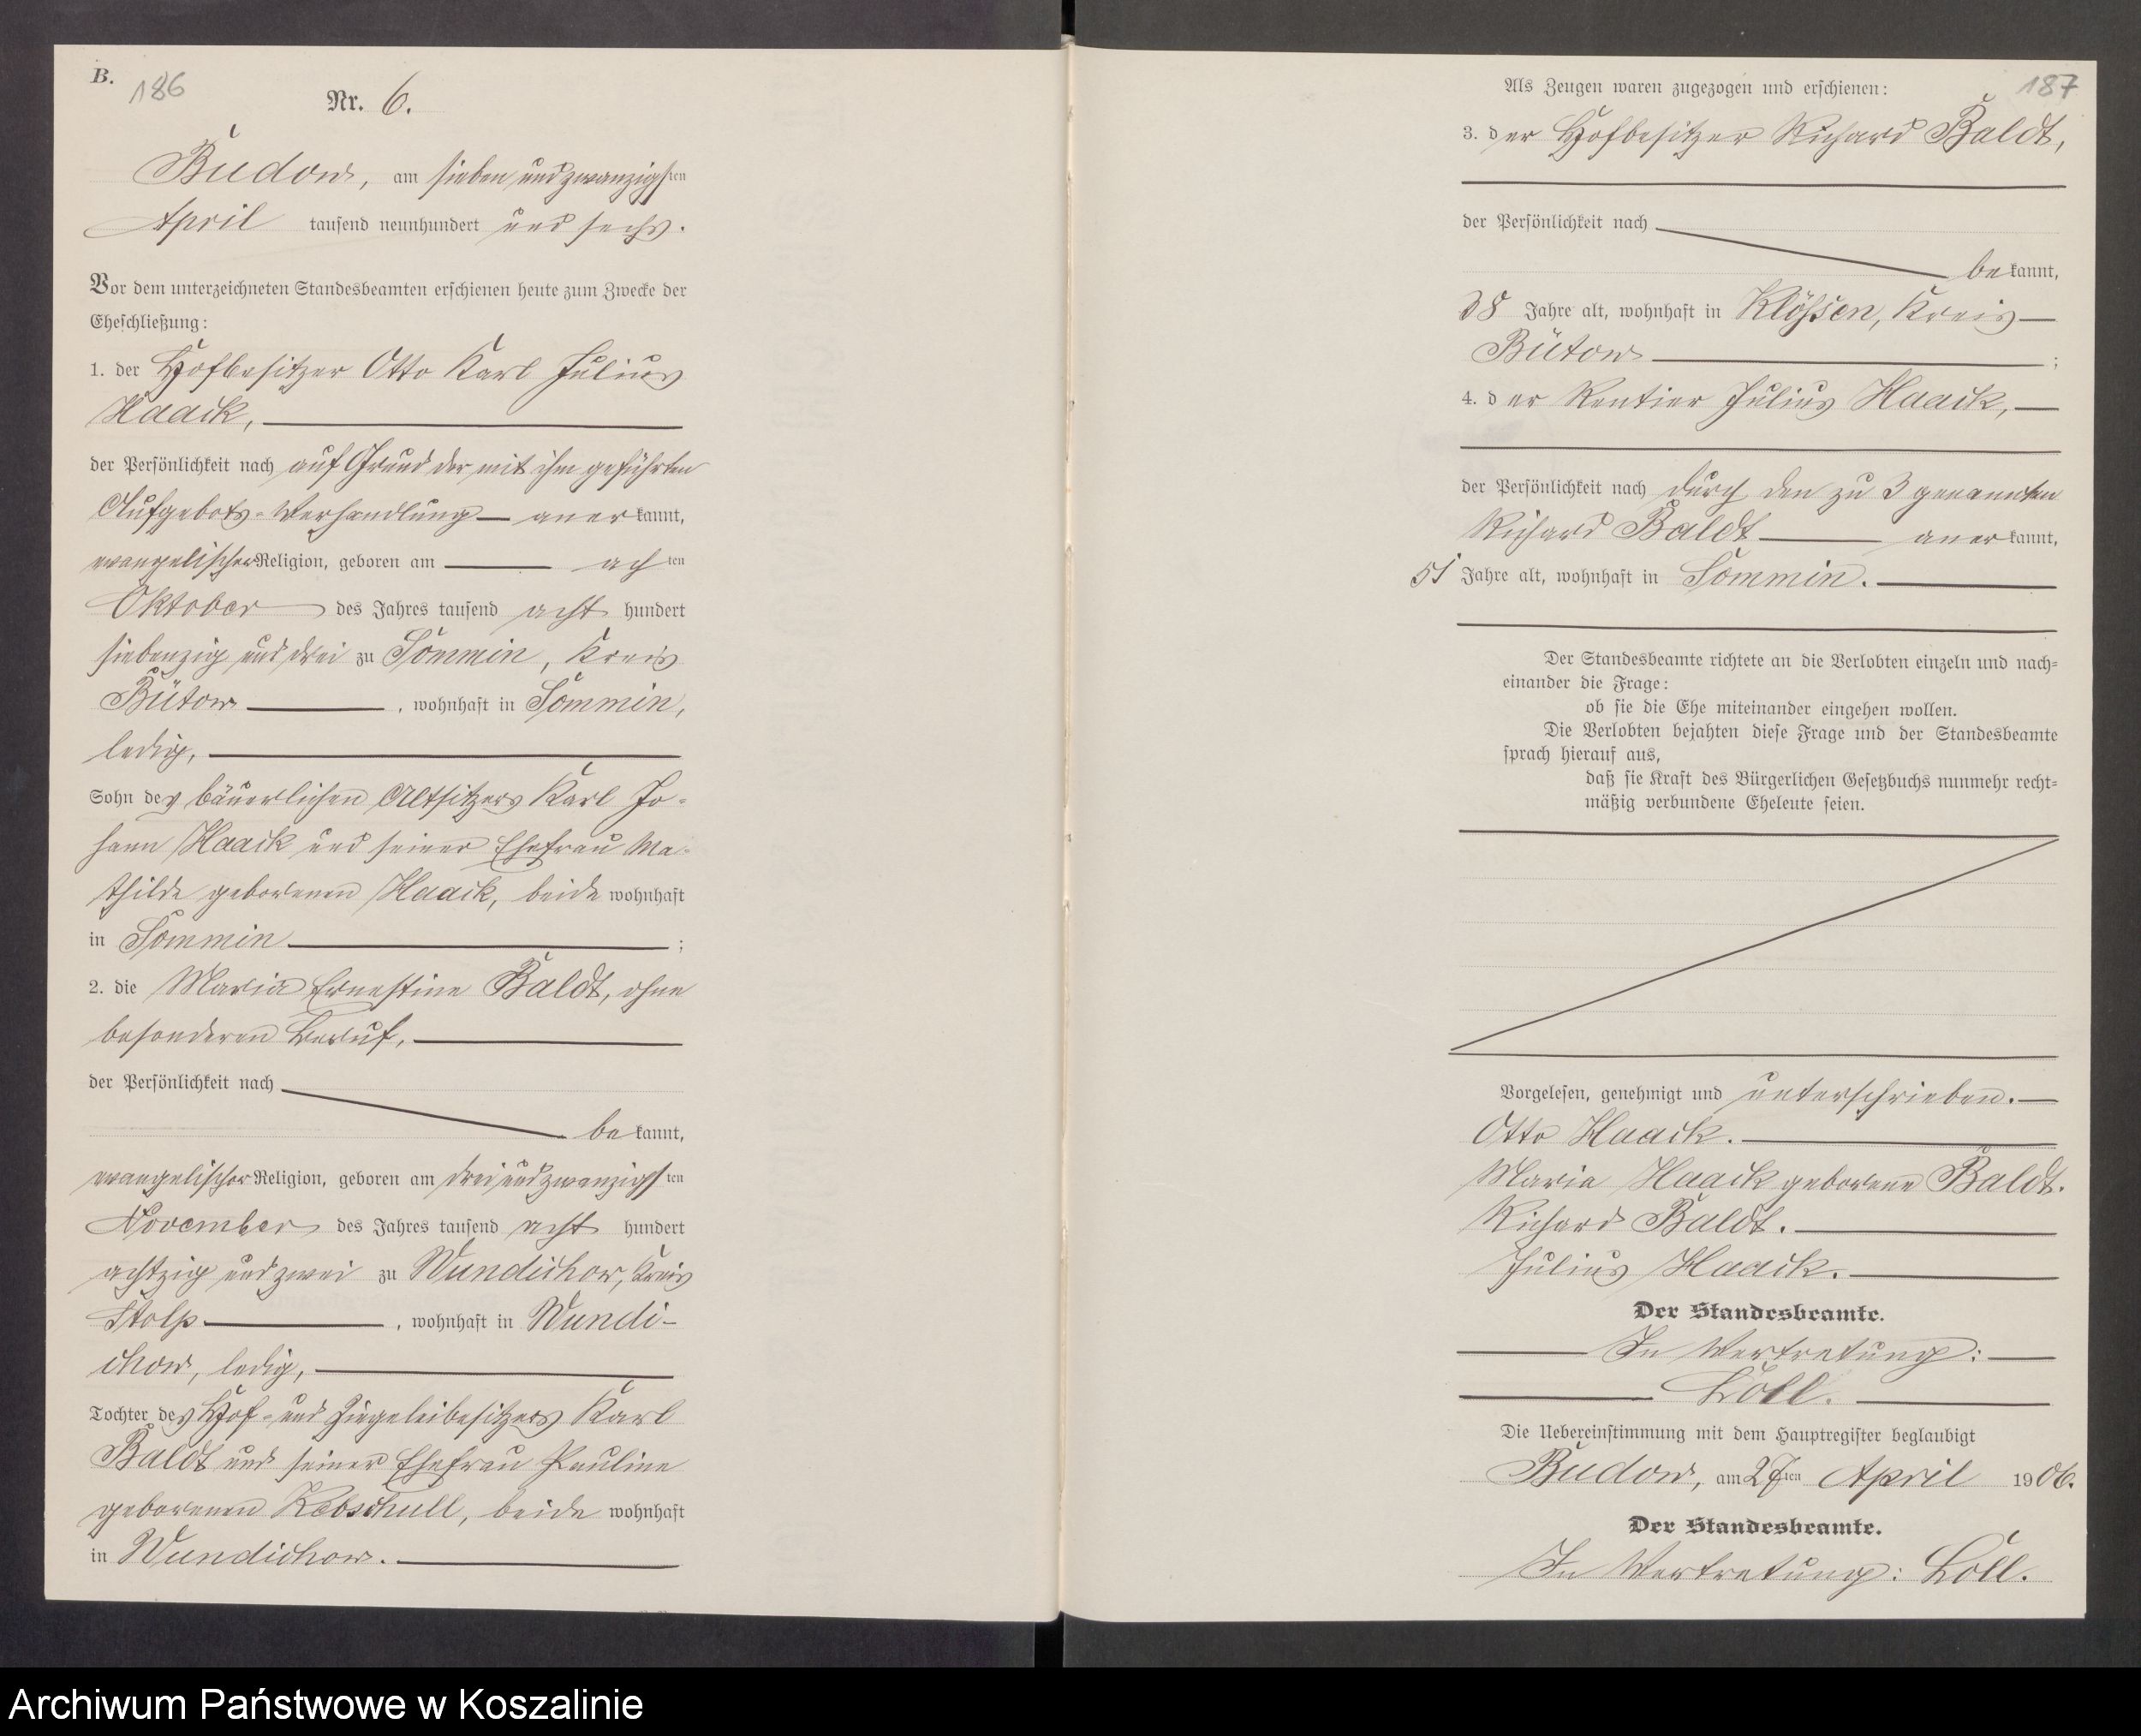 B.
186
Nr. 6.
Budow, am sieben und zwanzigsten
April tausend neunhundert und sechs.
Vor dem unterzeichneten Standesbeamten erschienen heute zum Zwecke der
Eheschließung:
1. der Hofbesitzer Otto Karl Julius
Haack,
der Persönlichkeit nach auf Grund der mit ihm geführten
Aufgebots-Verhandlung anerkannt,
evangelischer Religion, geboren am achten
Oktober des Jahres tausend acht hundert
siebenzig und drei zu Sommin, Kreis
Bütow, wohnhaft in Sommin,
ledig,
Sohn des bäuerlichen Altsitzers Karl Jo-
hann Haack und seiner Ehefrau Ma-
thilde geborenen Haack, beide wohnhaft
in Sommin;
2. die Maria Ernestine Baldt, ohne
besonderen Beruf,
der Persönlichkeit nach
bekannt,
evangelischer Religion, geboren am drei und zwanzigsten
November des Jahres tausend acht hundert
achtzig und zwei zu Wundichow, Kreis
Stolp, wohnhaft in Wundi-
chow, ledig,
Tochter des Hof- und Ziegeleibesitzers Karl
Baldt und seiner Ehefrau Pauline
geborenen Kobschull, beide wohnhaft
in Wundichow.
187
Als Zeugen waren zugezogen und erschienen:
3. der Hofbesitzer Richard Baldt,
der Persönlichkeit nach
bekannt,
38 Jahre alt, wohnhaft in Klößen, Kreis
Bütow;
4. der Rentier Julius Haack,
der Persönlichkeit nach durch den zu 3 genannten
Richard Baldt anerkannt,
51 Jahre alt, wohnhaft in Sommin.
Der Standesbeamte richtete an die Verlobten einzeln und nach-
einander die Frage:
ob sie die Ehe miteinander eingehen wollen.
Die Verlobten bejahten diese Frage und der Standesbeamte
sprach hierauf aus,
daß sie Kraft des Bürgerlichen Gesetzbuchs nunmehr recht-
mäßig verbundene Eheleute seien.
Vorgelesen, genehmigt und unterschrieben.
Otto Haack.
Maria Haack geborene Baldt.
Richard Baldt.
Julius Haack.
Der Standesbeamte.
In Vertretung:
Löll.
Die Uebereinstimmung mit dem Hauptregister beglaubigt
Budow, am 27ten April 1906.
Der Standesbeamte.
In Vertretung: Löll.
Archiwum Państwowe w Koszalinie